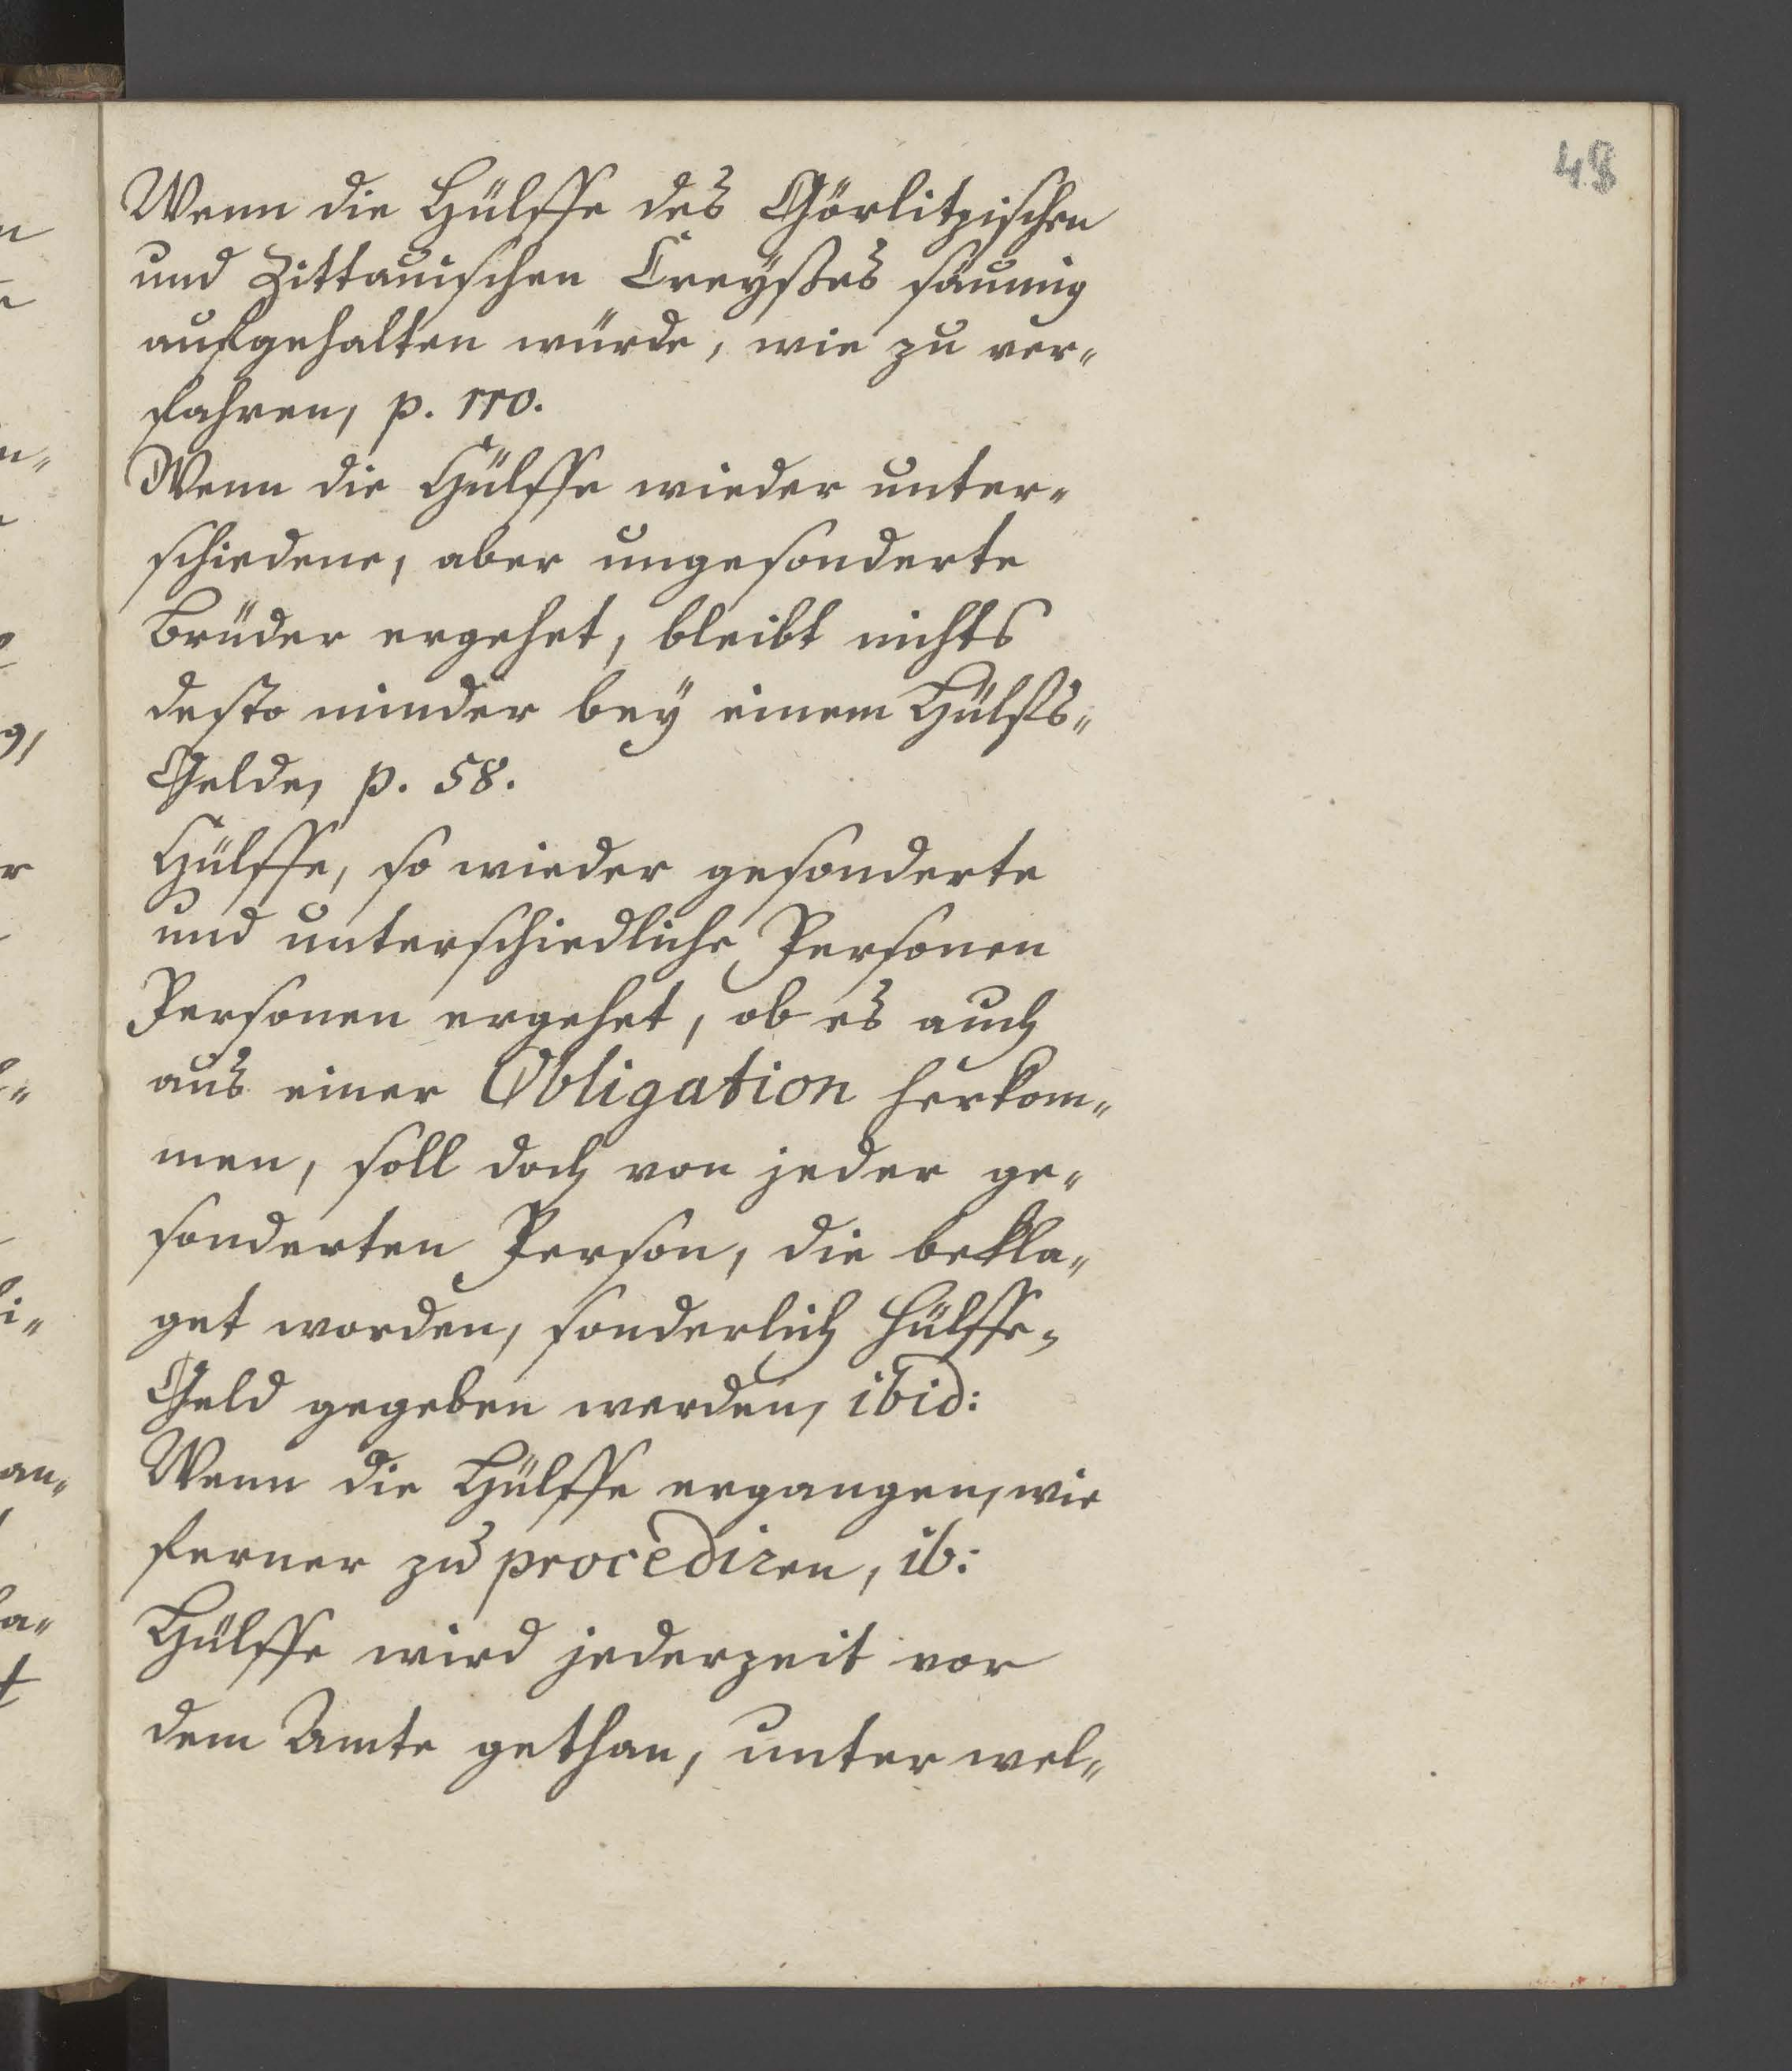 48
Wenn die Hülffe des Görlitzischen
und Zittauischen Creyßes säumig
aufgehalten würde, wie zu ver„
fahren, p. 110.
Wenn die Hülffe wieder unter„
schiedene, aber ungesonderte
Brüder ergehet, bleibt nichts
desto minder bey einem Hülffs„
Gelde, p. 58.
Hülffe, so wieder gesonderte
und unterschiedliche Personen
Personen ergehet, ob es auch
aus einer Obligation herkom„
men, soll doch von jeder ge„
sonderten Person, die bekla„
get worden, sonderlich Hülffe„
Geld gegeben werden, ibid:
Wenn die Hülffe ergangen, wie
ferner zu procediren, ib:
Hülffe wird jederzeit vor
dem Amte gethan, unter wel„